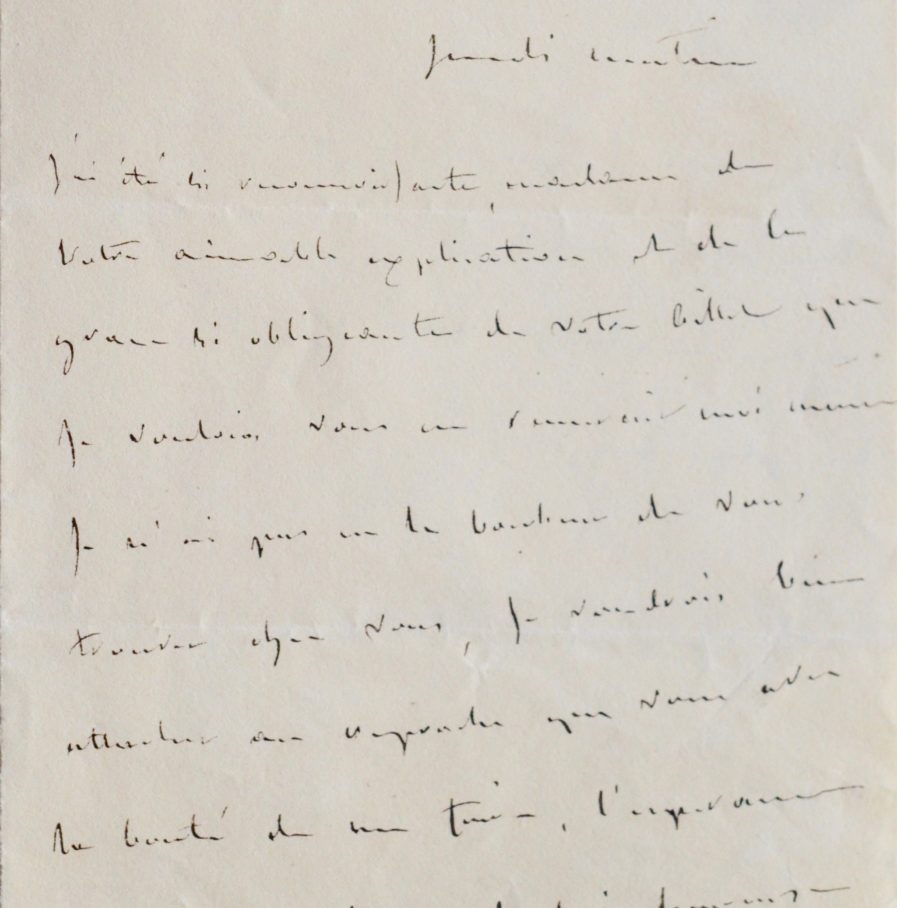 Jeudi matin
J'ai été si reconnoissante, madame de
Votre aimable explication et de la
grace si obligeante de votre billet que
Je voulois vous en remercier moi même
Je n'ai pas eu le bonheur de vous
trouver chez vous, Je voudrois bien
attacher au reproche que vous avez
la bonté de me faire, l'esperance